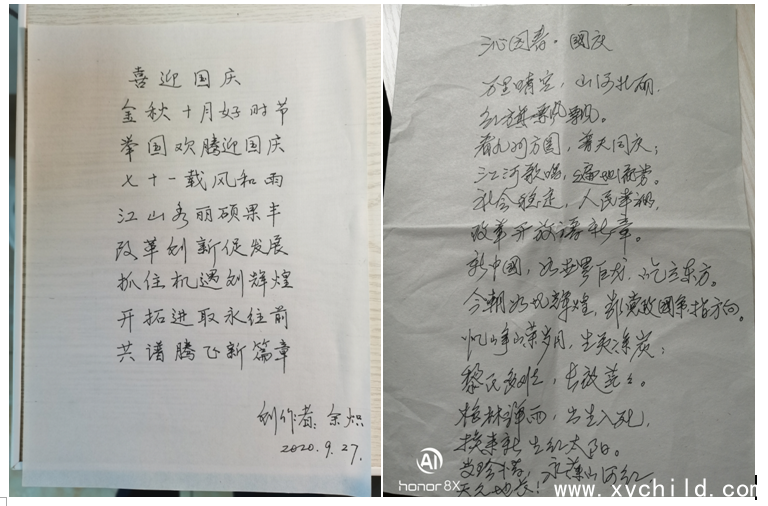 喜迎国庆
金秋十月好时节
举国欢腾迎国庆
七十一载风和雨
江山秀丽硕果丰
改革创新促发展
抓住机遇创辉煌
开拓进取永往前
共谱腾飞新篇章
创作者：余炽
2020.9.27.
沁园春·國庆
万里晴空，山河壮丽，
红旗飘飘。
看九州方圆，普天同庆；
江河歌唱，遍地
社会稳定，人民幸福，
改革开放谱新章。
新中國，如世界巨龙，屹立东方。
今朝如此辉煌，
忆峥嵘岁月，生灵涂炭；
黎民
枪林弹雨，出生入死，
换来新生红太阳。
永葆山河红，
天久地长！
AI
honor 8X
www.xychild.com